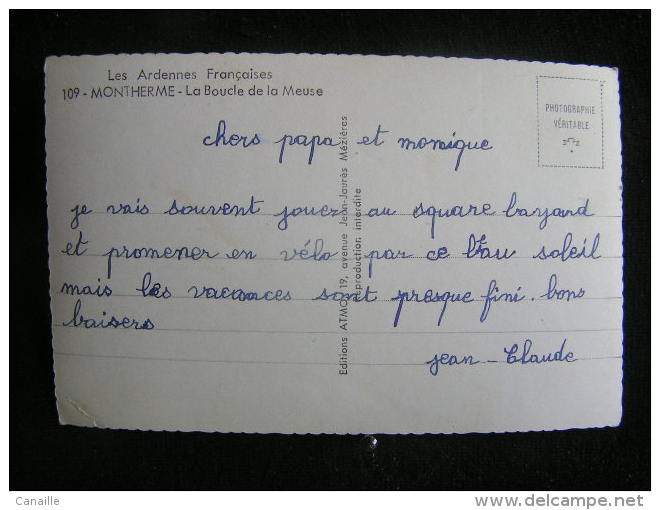 Les Ardennes Françaises
109 - MONTHERME - La Boucle de la Meuse
PHOTOGRAPHIE
VÉRITABLE
chers papa et monique
je vais souvent jouer au square bayard
et promener en vélo par ce beau soleil
mais les vacances sont presque fini. bons
baisers
jean - Claude
Editions ATMO, 19, avenue Jean-Jaurès Mézières
reproduction interdite
Canaille
www.delcampe.net